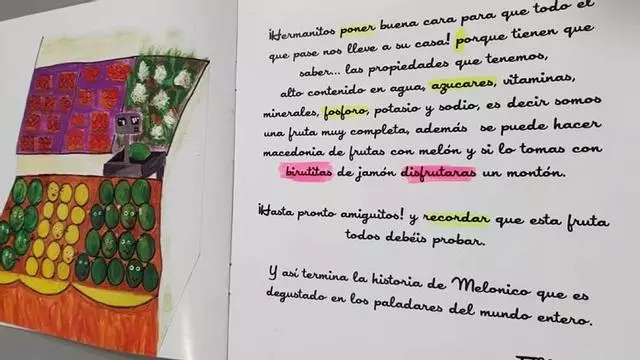 ¡Hermanitos poner buena cara para que todo el
que pase nos lleve a su casa! porque tienen que
saber... las propiedades que tenemos,
alto contenido en agua, azucares, vitaminas,
minerales, fosforo, potasio y sodio, es decir somos
una fruta muy completa, además se puede hacer
macedonia de frutas con melón y si lo tomas con
birutitas de jamón disfrutaras un montón.
¡Hasta pronto amiguitos! y recordar que esta fruta
todos debéis probar.
Y así termina la historia de Melonico que es
degustado en los paladares del mundo entero.